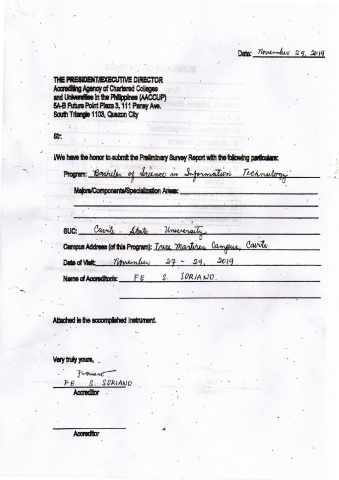 Date: November 29, 2019
THE PRESIDENT/EXECUTIVE DIRECTOR
Accrediting Agency of Chartered Colleges
and Universities in the Philippines (AACCUP)
5A-B Future Point Plaza 3, 111 Panay Ave.
South Triangle 1103, Quezon City
Sir:
I/We have the honor to submit the Preliminary Survey Report with the following particulars:
Program: Bachelor of Science in Information Technology
Majors/Components/Specialization Areas:
SUC: Cavite State University
Campus Address (of this Program): Trece Martires Campus, Cavite
Date of Visit: November 27 - 29, 2019
Name of Accreditor/s: FE S. SORIANO
Attached is the accomplished instrument.
Very truly yours,
FE S. SORIANO
Accreditor
Accreditor